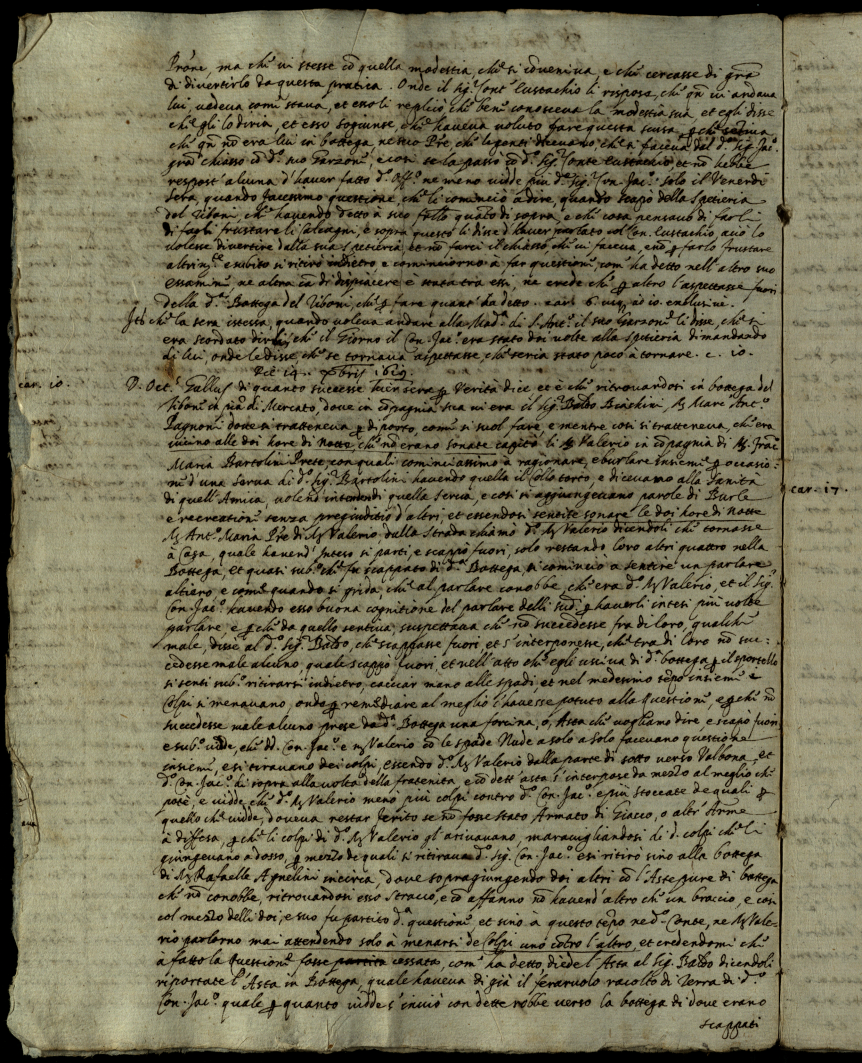 Prōne, ma che vi stesse cō quella modestia, che si cōveniva, e che cercasse di grā
di divertirlo da questa pratica. Onde il Sig.r Cont' Eustachio li rispose, che qn̄ vi andava
lui, vedeva com' stava, et esso li replicò che ben' conosceva la modestia sua, et egli disse
che gli lo diria, et esso sogiunse, che haveva voluto fare questa scusa
che qn̄ nō era lui in bottega, ne suo Pre, che si faceva del d.o Sig. Jac.o
gran chiasso cō d.o suo Garzon', e cosi se la passò cō d.o Sig. Conte Eustachio et nō hebbe
respost' alcuna d'haver fatto d.o Off.o ne meno vidde più d.o Sig. Con. Jac.o solo il Venerdi
sera, quando facessimo questione, che li cominciò à dire, quando scapò della Spetieria
del Tiboni, che havendo detto à suo quāto di sopra, e che cosa pensava di farli
di farli frustare li e sopra questo li disse d'haver parlato col Con. Eustachio, acciò lo
volesse divertire dalla sua Spetieria, et nō farci il chiasso che vi faceva, e nō farlo frustare
altrim.te e subito si ritirò indietro e cominciorno à far question', com' ha detto nell' altro suo
essamin', ne altra cā di dispiacere è stata tra essi, ne crede che altro l'aspettasse fuori
della d.a Bottega del Tiboni, che fare quant' ha detto. à car. 6. usq. ad 10. exclusivè.
che la sera istessa, quando voleva andare alla Mad.a di S. Ant.o il suo Garzon' li disse, che si
era scordato dirli, che il Giorno il Con. Jac.o era stato doi volte alla Spetieria dimandando
di lui, onde le disse, che se tornava aspettasse, che seria stato poco à tornare. c. 10.
Die 14. Xbris 1629.
car. 10.
D. Oct.s Gallus di quanto successe hiersera Verità dice et è che ritrovandosi in bottega del
Tiboni in piā di Mercato, dove in cōpagnia sua vi era il Sig. Baldo Bianchini, M. Marc' Ant.o
Pagnoni dove si tratteneva diporto, com' si suol fare, e mentre cosi si tratteneva, che era
vicino alle doi hore di notte, che nō erano sonate capitò lì M. Valerio in cōpagnia di M. Frāc.o
Maria Bartolini Prete, con quali cominciassimo à ragionare, e burlare insieme occasio:
ni d'una Serva di d.o Sig. Bartolini havendo quella il Collo torto, e dicevamo alla Sanità
di quell' Amica, volēdo intender di quella serva, e cosi si aggiungevano parole di Burle
e recreation' senza pregiuditio d'altri, et essendosi sentite sonare le doi hore di notte
M. Ant.o Maria Pre di M. Valerio, dalla strada chiamò d.o M. Valerio dicendoli che tornasse
à Casa, quale havend' Inteso si partì, e scappò fuori, solo restando loro altri quattro nella
Bottega, et quasi sub.o che fu scappato di d.a Bottega, si cominciò a sentire un parlare
altiero, e com' quando si grida, che al parlare conobbe, che era d.o M. Valerio, et il Sig.
Con. Jac.o havendo esso buona cognitione del parlare delli sud.i haverli intesi più volte
parlare, e che da quello sentiva, suspettava che nō succedesse fra di loro, qualche
male, disse al d.o Sig. Baldo, che scappasse fuori et s'interponesse, che tra di loro nō suc:
cedesse male alcuno, quale scappò fuori, et nell' atto che egli usciva di d.a bottega il sportello
si sentì sub.o ritirarsi indietro, cacciar mano alle spadi, et nel medesimo tēpo insiem' e
Colpi si menavano, onde remediare al meglio l'havesse potuto alla Question', e che nō
succedesse male alcuno prese da d.a Bottega una forcina, ò, Asta che vogliamo dire, e scapò fuori
e sub.o vidde, che dd. Con. Jac.o e M. Valerio cō le spade Nude à solo à solo facevano questione
insiem', e si tiravano dei colpi, essendo d.o M. Valerio dalla parte di sotto verso Valbona, et
d.o Con. Jac.o di sopra alla volta della fratenita e cō dett' asta s'interpose da mezzo al meglio che
potè, e vidde che d.o M. Valerio menò più colpi contro d.o Con. Jac.o e più stoccate de quali
quello che vidde, doveva restar ferito se nō fosse stato Armato di Giacco, o altr' Arme
à diffesa, che li colpi di d.o M. Valerio gl'arivavano, maravigliandosi di d. colpi che li
giungevano adosso, mezzo de quali si ritirava d.o Sig. Con. Jac.o e si ritirò sino alla bottega
di M. Rafaelle Agnelini incirca, dove sopragiungendo doi altri cō l'Aste pure di bottega
che nō conobbe, ritrovandosi esso Stracco, e cō affanno nō havend' altro che un braccio, e cosi
col mezzo delli doi, e suo fu partito d.a question', et sino à questo tēpo ne d.o Conte, ne M. Vale-
rio parlorno mai attendendo solo à menarsi de Colpi uno cōtro l'altro, et credendomi che
à fatto la question' fosse partita cessata, com' ha detto, diede l'Asta al Sig. Baldo dicendoli
riportate l'Asta in Bottega, quale haveva di già il feraruolo racolto di Terra di d.o
Con. Jac.o quale quanto vidde s'inviò con dette robbe verso la bottega di dove erano
scappati
car. 17.